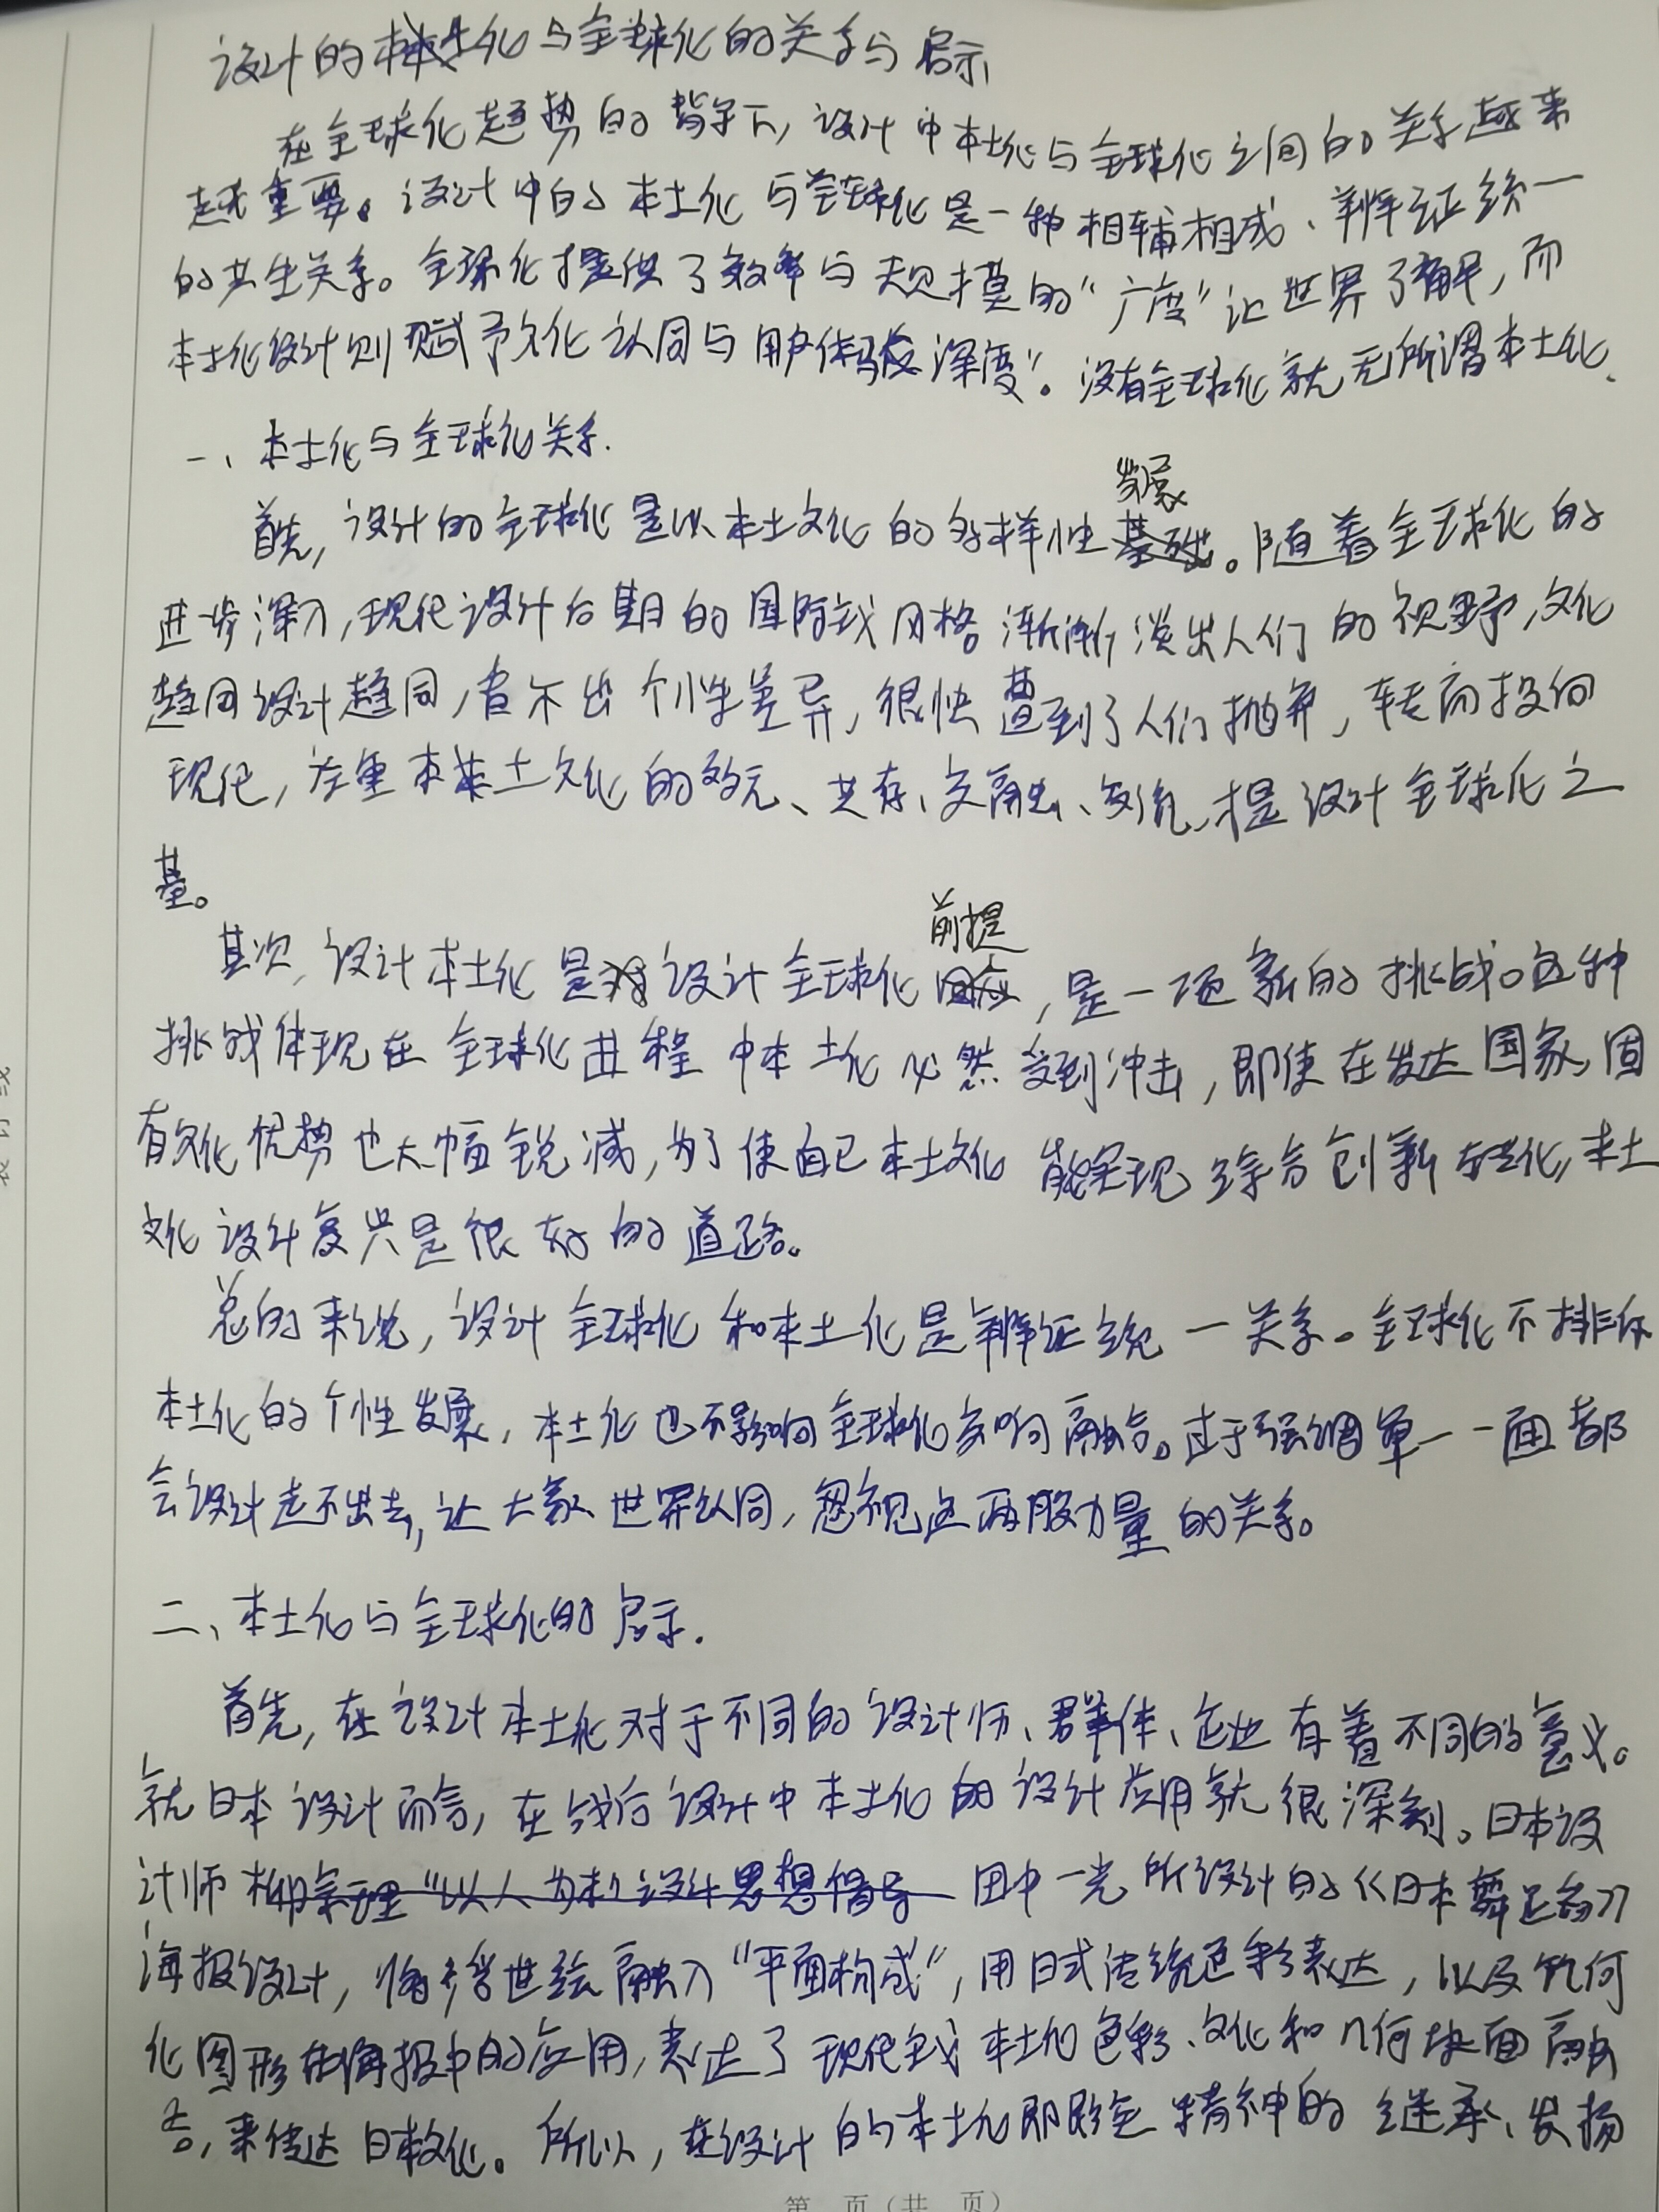 设计的本土化与全球化的关系与启示
在全球化趋势的背景下,设计中本土化与全球化之间的关系越来
越重要。设计中的本土化与全球化是一种相辅相成、辩证统一
的共生关系。全球化提供了效率与规模的“广度”让世界了解,而
本土化设计则赋予文化认同与用户体验深度”。没有全球化就无所谓本土化、
一、本土化与全球化关系.
发展
首先,设计的全球化是以本土文化的多样性基础。随着全球化的
进步深入,现代设计后期的国际式风格渐渐淡出人们的视野,文化
趋同设计趋同,看不出个性差异,很快遭到了人们抛弃,转而投向
现代,本土文化的多元、共存、交融、交流,才是设计全球化之
基。
前提
其次,设计本土化是设计全球化回应,是一项新的挑战。这种
挑战体现在全球化进程中本土化必然受到冲击,即使在发达国家,固
有文化优势也大幅锐减,为了使自己本土文化能实现综合创新转化,本土
文化设计复兴是很好的道路。
总的来说,设计全球化和本土化是辩证统一关系。全球化不排斥
本土化的个性发展,本土化也不影响全球化方向融合。过于强调单一一面都
会设计走不出去,让大家世界认同,忽视这两股力量的关系。
二、本土化与全球化的启示.
首先,在设计本土化对于不同的设计师、群体、企业有着不同的意义。
就日本设计而言,在战后设计中本土化的设计应用就很深刻。日本设
计师柳宗理“以人为本”设计思想倡导 田中一光所设计的《日本舞蹈》
海报设计,将浮世绘融入“平面构成”,用日式传统色彩表达,以及几何
化图形在海报中的应用,表达了现代式本土化色彩、文化和几何块面融
合,来传达日本文化。所以,在设计的本土化即民族精神的继承、发扬
第 页(共 页)
装订线